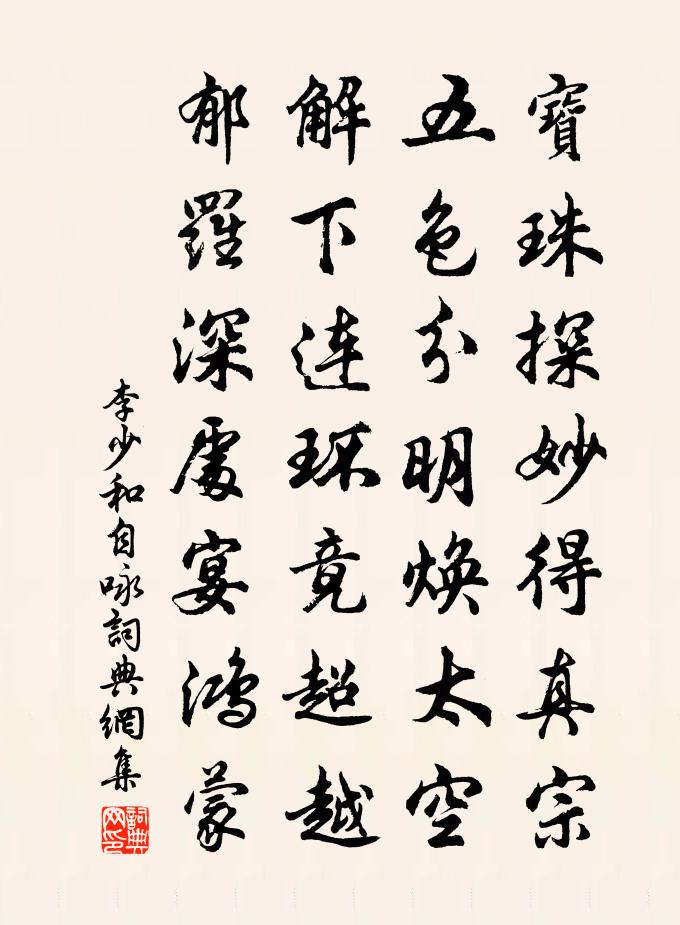 寶珠探妙得真宗
五色分明焕太空
解下连环竟超越
郁羅深處宴鴻蒙
李少和自咏詞典網集
詞典網印